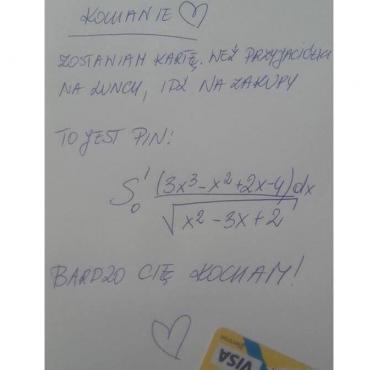 KOCHANIE ♡
ZOSTAWIAM KARTĘ. WEŹ PRZYJACIÓŁKI
NA LUNCH, IDŹ NA ZAKUPY
TO JEST PIN:
∫₀¹ (3x³-x²+2x-4)dx / √(x²-3x+2)
BARDZO CIĘ KOCHAM!
♡
VISA